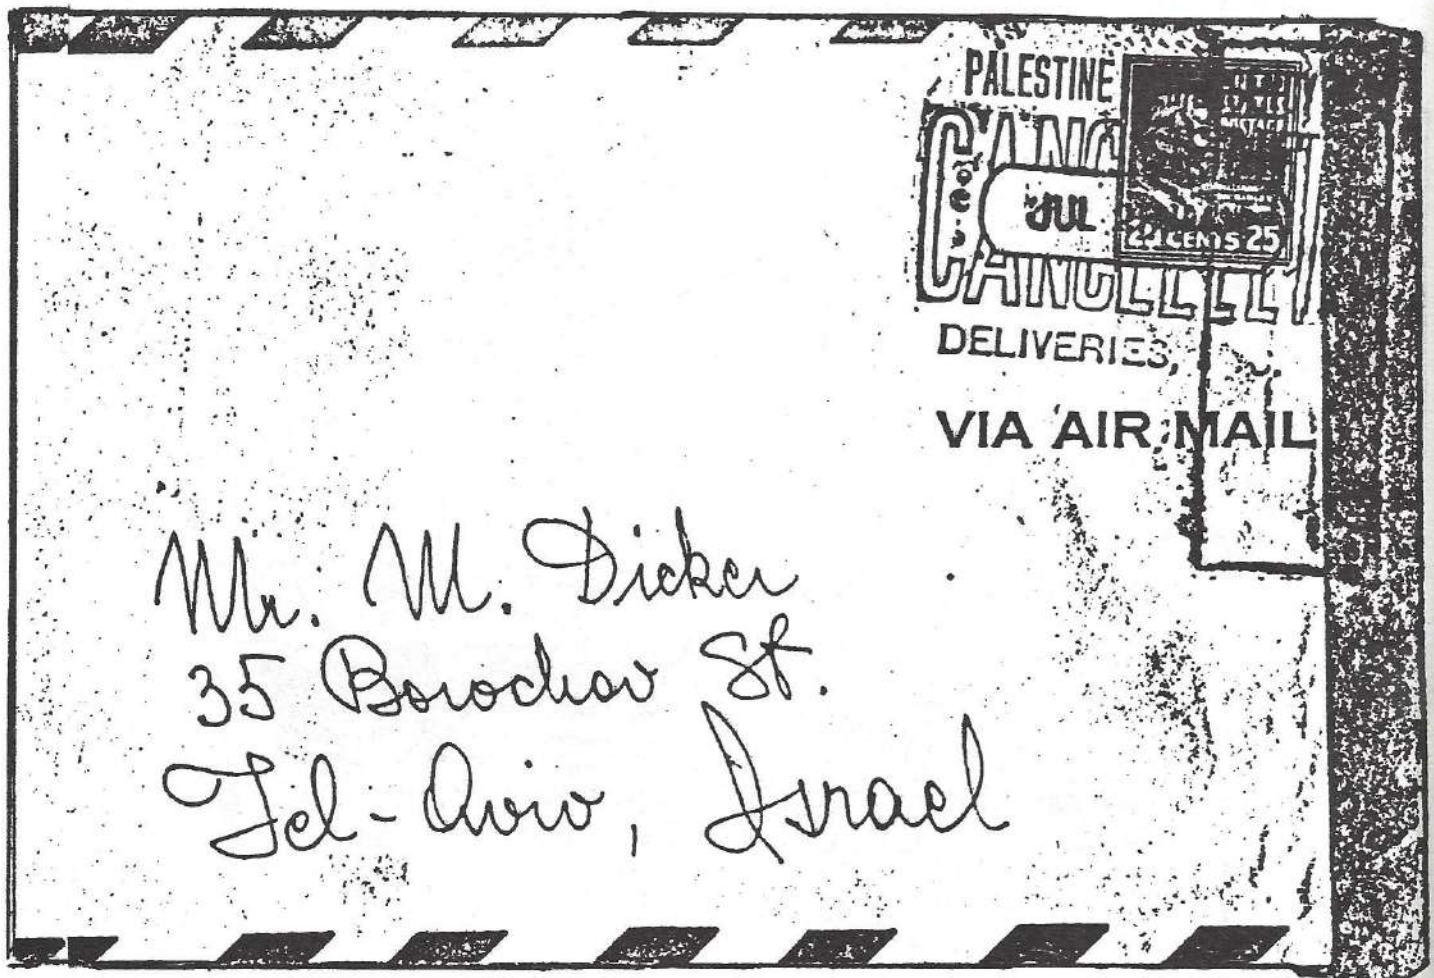 PALESTINE
UNITED
STATES
POSTAGE
JUL
25 CENTS 25
DELIVERIES,
VIA AIR MAIL
Mr. M. Dicker
35 Borochov St.
Tel-Aviv, Israel